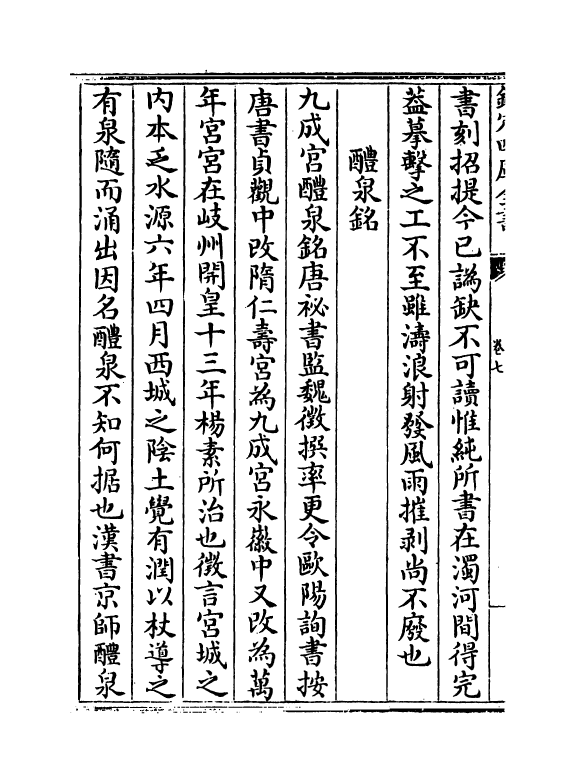 書刻招提今已譌缺不可讀惟純所書在濁河間得完
葢摹擊之工不至雖濤浪射發風雨摧剥尚不廢也
醴泉銘
九成宮醴泉銘唐祕書監魏徴撰率更令歐陽詢書按
唐書貞觀中改隋仁壽宮為九成宮永徽中又改為萬
年宮宮在岐州開皇十三年楊素所治也徴言宮城之
内本乏水源六年四月西城之陰土覺有潤以杖導之
有泉隨而涌出因名醴泉不知何据也漢書京師醴泉
卷七